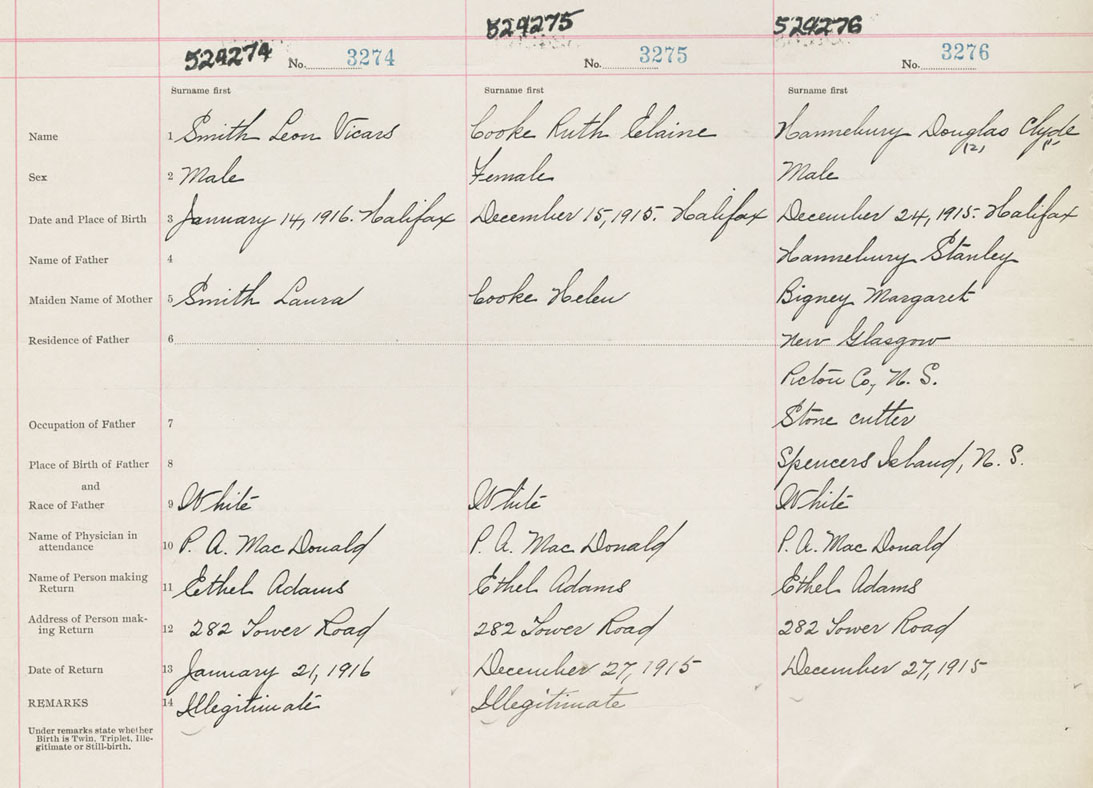 529274 529275 529276
No. 3274 No. 3275 No. 3276
Surname first Surname first Surname first
Name 1 Smith Leon Vicars Cooke Ruth Elaine Hannebury Douglas Clyde
(2) (1)
Sex 2 Male Female Male
Date and Place of Birth 3 January 14, 1916. Halifax December 15, 1915. Halifax December 24, 1915. Halifax
Name of Father 4 Hannebury Stanley
Maiden Name of Mother 5 Smith Laura Cooke Helen Bigney Margaret
Residence of Father 6 New Glasgow
Pictou Co, N. S.
Occupation of Father 7 Stone cutter
Place of Birth of Father 8 Spencers Island, N. S.
and
Race of Father 9 White White White
Name of Physician in
attendance 10 P. A. Mac Donald P. A. Mac Donald P. A. Mac Donald
Name of Person making
Return 11 Ethel Adams Ethel Adams Ethel Adams
Address of Person mak-
ing Return 12 282 Tower Road 282 Tower Road 282 Tower Road
Date of Return 13 January 21, 1916 December 27, 1915 December 27, 1915
REMARKS 14 Illegitimate Illegitimate
Under remarks state whether
Birth is Twin, Triplet, Ille-
gitimate or Still-birth.